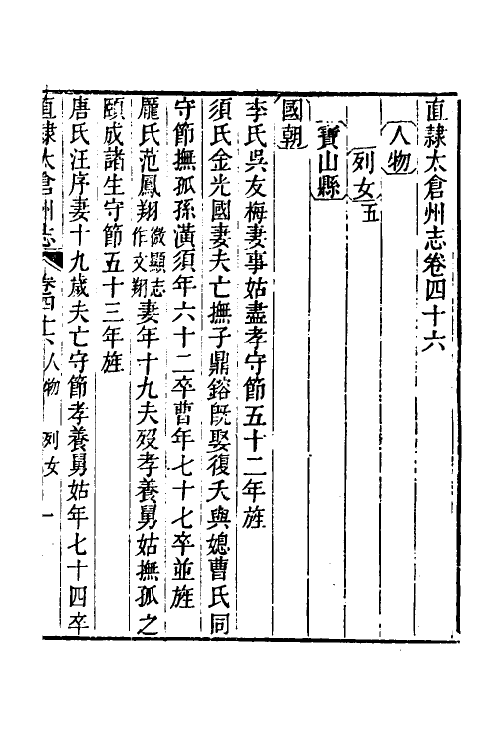 直隸太倉州志卷四十六
人物
列女五
寶山縣
國朝
李氏吳友梅妻事姑盡孝守節五十二年旌
須氏金光國妻夫亡撫子鼎鎔旣娶復夭與媳曹氏同
守節撫孤孫潢須年六十二卒曹年七十七卒並旌
龎氏范鳳翔微顯志作文翔妻年十九夫歿孝養舅姑撫孤之
頤成諸生守節五十三年旌
唐氏汪序妻十九歲夫亡守節孝養舅姑年七十四卒
直隸太倉州志 卷四十六 人物 列女 一